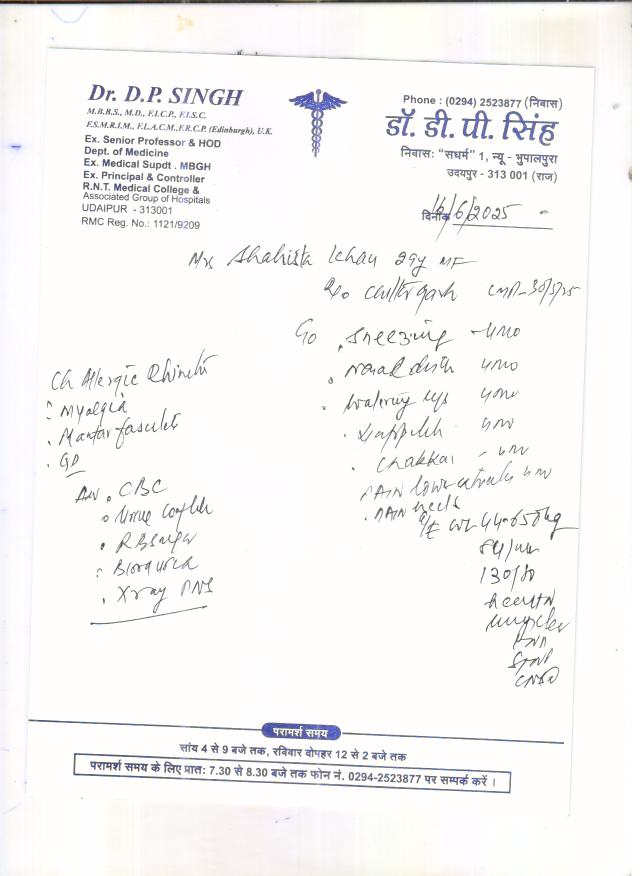 Dr. D.P. SINGH
M.B.B.S., M.D., F.I.C.P., F.I.S.C.
F.S.M.R.I.M., F.I.A.C.M.,F.R.C.P. (Edinburgh), U.K.
Ex. Senior Professor & HOD
Dept. of Medicine
Ex. Medical Supdt . MBGH
Ex. Principal & Controller
R.N.T. Medical College &
Associated Group of Hospitals
UDAIPUR - 313001
RMC Reg. No.: 1121/9209
Phone : (0294) 2523877 (निवास)
डॉ. डी. पी. सिंह
निवासः "सधर्म" 1, न्यू - भुपालपुरा
उदयपुर - 313 001 (राज)
दिनांक 16/6/2025
Mrs Shahista Khan 29y MF
Chittorgarh LMP-30/5/25
C/o Sneezing - 4mo
4mo
Watering eyes 4mo
4mo
Chakkar - 4mo
PAIN lower 4mo
PAIN heels
O/E wt 44.650kg
84/min
130/80
Ch Allergic Rhinitis
Myalgia
Plantar fascitis
GD
Adv. CBC
Urine Complete
RBSugar
X ray PNS
परामर्श समय
सांय 4 से 9 बजे तक, रविवार दोपहर 12 से 2 बजे तक
परामर्श समय के लिए प्रातः 7.30 से 8.30 बजे तक फोन नं. 0294-2523877 पर सम्पर्क करें ।